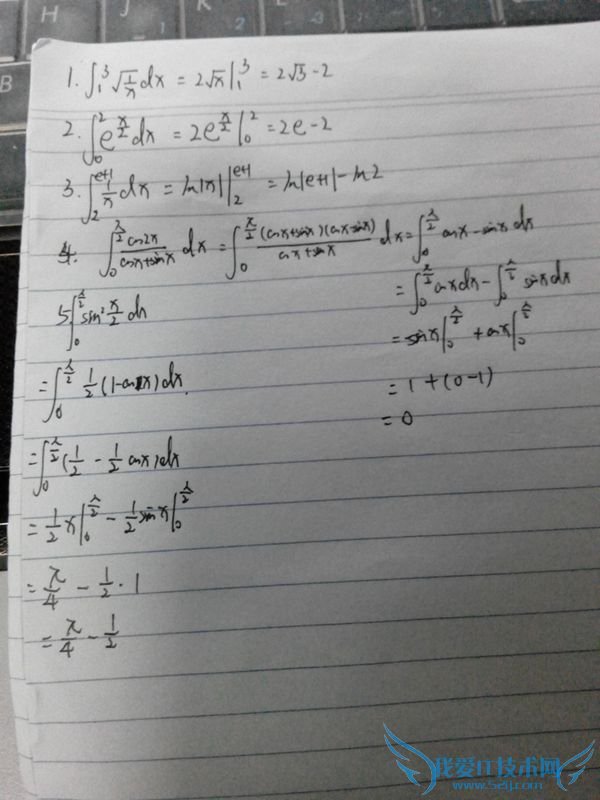 H
B
1. ∫₁³ √(1/x) dx = 2√x |₁³ = 2√3 - 2
2. ∫₀² e^(x/2) dx = 2e^(x/2) |₀² = 2e - 2
3. ∫₂^(e+1) 1/x dx = ln|x| |₂^(e+1) = ln|e+1| - ln2
4. ∫₀^(π/2) cos2x/(cosx+sinx) dx = ∫₀^(π/2) (cosx+sinx)(cosx-sinx)/(cosx+sinx) dx = ∫₀^(π/2) cosx - sinx dx
= ∫₀^(π/2) cosx dx - ∫₀^(π/2) sinx dx
= sinx |₀^(π/2) + cosx |₀^(π/2)
= 1 + (0-1)
= 0
5. ∫₀^(π/2) sin² x/2 dx
= ∫₀^(π/2) 1/2 (1-cosx) dx.
= ∫₀^(π/2) (1/2 - 1/2 cosx) dx
= 1/2 x |₀^(π/2) - 1/2 sinx |₀^(π/2)
= π/4 - 1/2 · 1
= π/4 - 1/2
我爱IT技术网
www.52ij.com